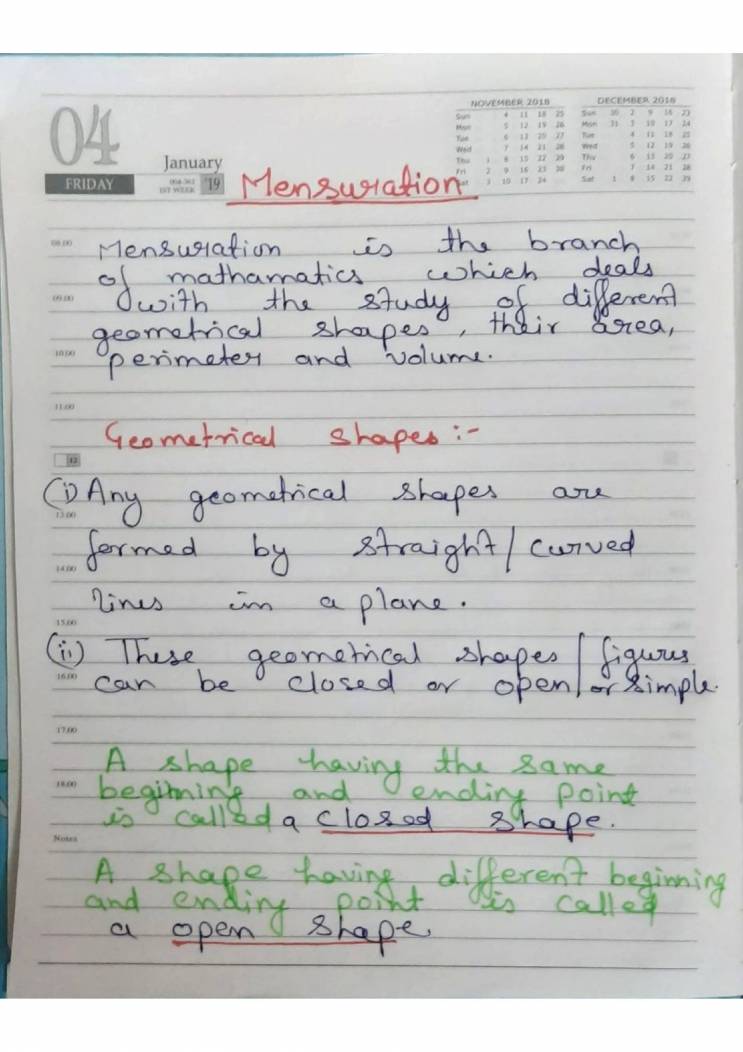 04
January
FRIDAY
004-361
1ST WEEK
'19
NOVEMBER 2018
Sun 4 11 18 25
Mon 5 12 19 26
Tue 6 13 20 27
Wed 7 14 21 28
Thu 1 8 15 22 29
Fri 2 9 16 23 30
Sat 3 10 17 24
DECEMBER 2018
Sun 30 2 9 16 23
Mon 31 3 10 17 24
Tue 4 11 18 25
Wed 5 12 19 26
Thu 6 13 20 27
Fri 7 14 21 28
Sat 1 8 15 22 29
Mensuration
08.00 Mensuration is the branch
of mathamatics which deals
09.00 with the study of different
geometrical shapes, their area,
10.00 perimeter and volume.
11.00
Geometrical shapes :-
12
(i) Any geometrical shapes are
13.00
formed by straight/curved
14.00
lines in a plane.
15.00
(ii) These geometrical shapes/figures
16.00 can be closed or open/or simple.
17.00
A shape having the same
18.00 beginning and ending point
is called a closed shape.
Notes
A shape having different beginning
and ending point is called
a open shape.